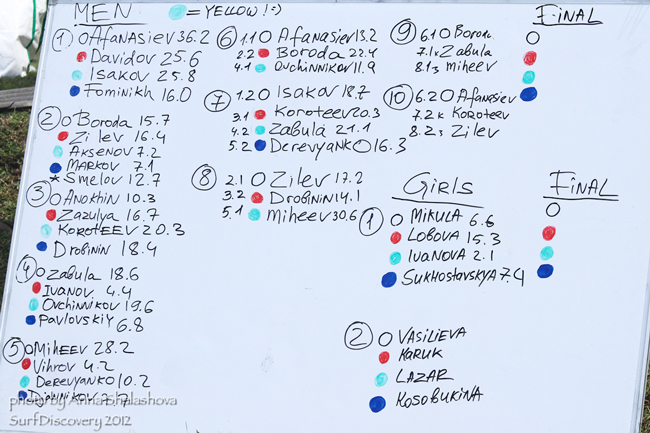 MEN = YELLOW! :-)
1 Afanasiev 36.2
Davidov 25.6
Isakov 25.8
Fominikh 16.0
2 Boroda 15.7
Zilev 16.4
Axsenov 7.2
Markov 7.1
* Smelov 12.7
3 Anokhin 10.3
Zazulya 16.7
Koroteev 20.3
Drobinin 18.4
4 Zabula 18.6
Ivanov 4.4
Ovchinnikov 19.6
Pavlovskiy 6.8
5 Miheev 28.2
Vihrov 4.2
Derevyanko 10.2
6 1.1 Afanasiev 13.2
2.2 Boroda 22.4
4.1 Ovchinnikov 11.9
7 1.2 Isakov 18.7
3.1 Koroteev 20.3
4.2 Zabula 21.1
5.2 Derevyanko 16.3
8 2.1 Zilev 17.2
3.2 Drobinin 14.1
5.1 Miheev 30.6
9 6.1 Boroda
7.1 x Zabula
8.1 Miheev
10 6.2 Afanasiev
7.2 x Koroteev
8.2 Zilev
Final
Girls
1 Mikula 6.6
Lobova 15.3
Ivanova 2.1
Sukhostavskya 7.4
2 Vasilieva
Karuk
Lazar
Kosobukina
Final
photo by Anna Shalashova
SurfDiscovery 2012